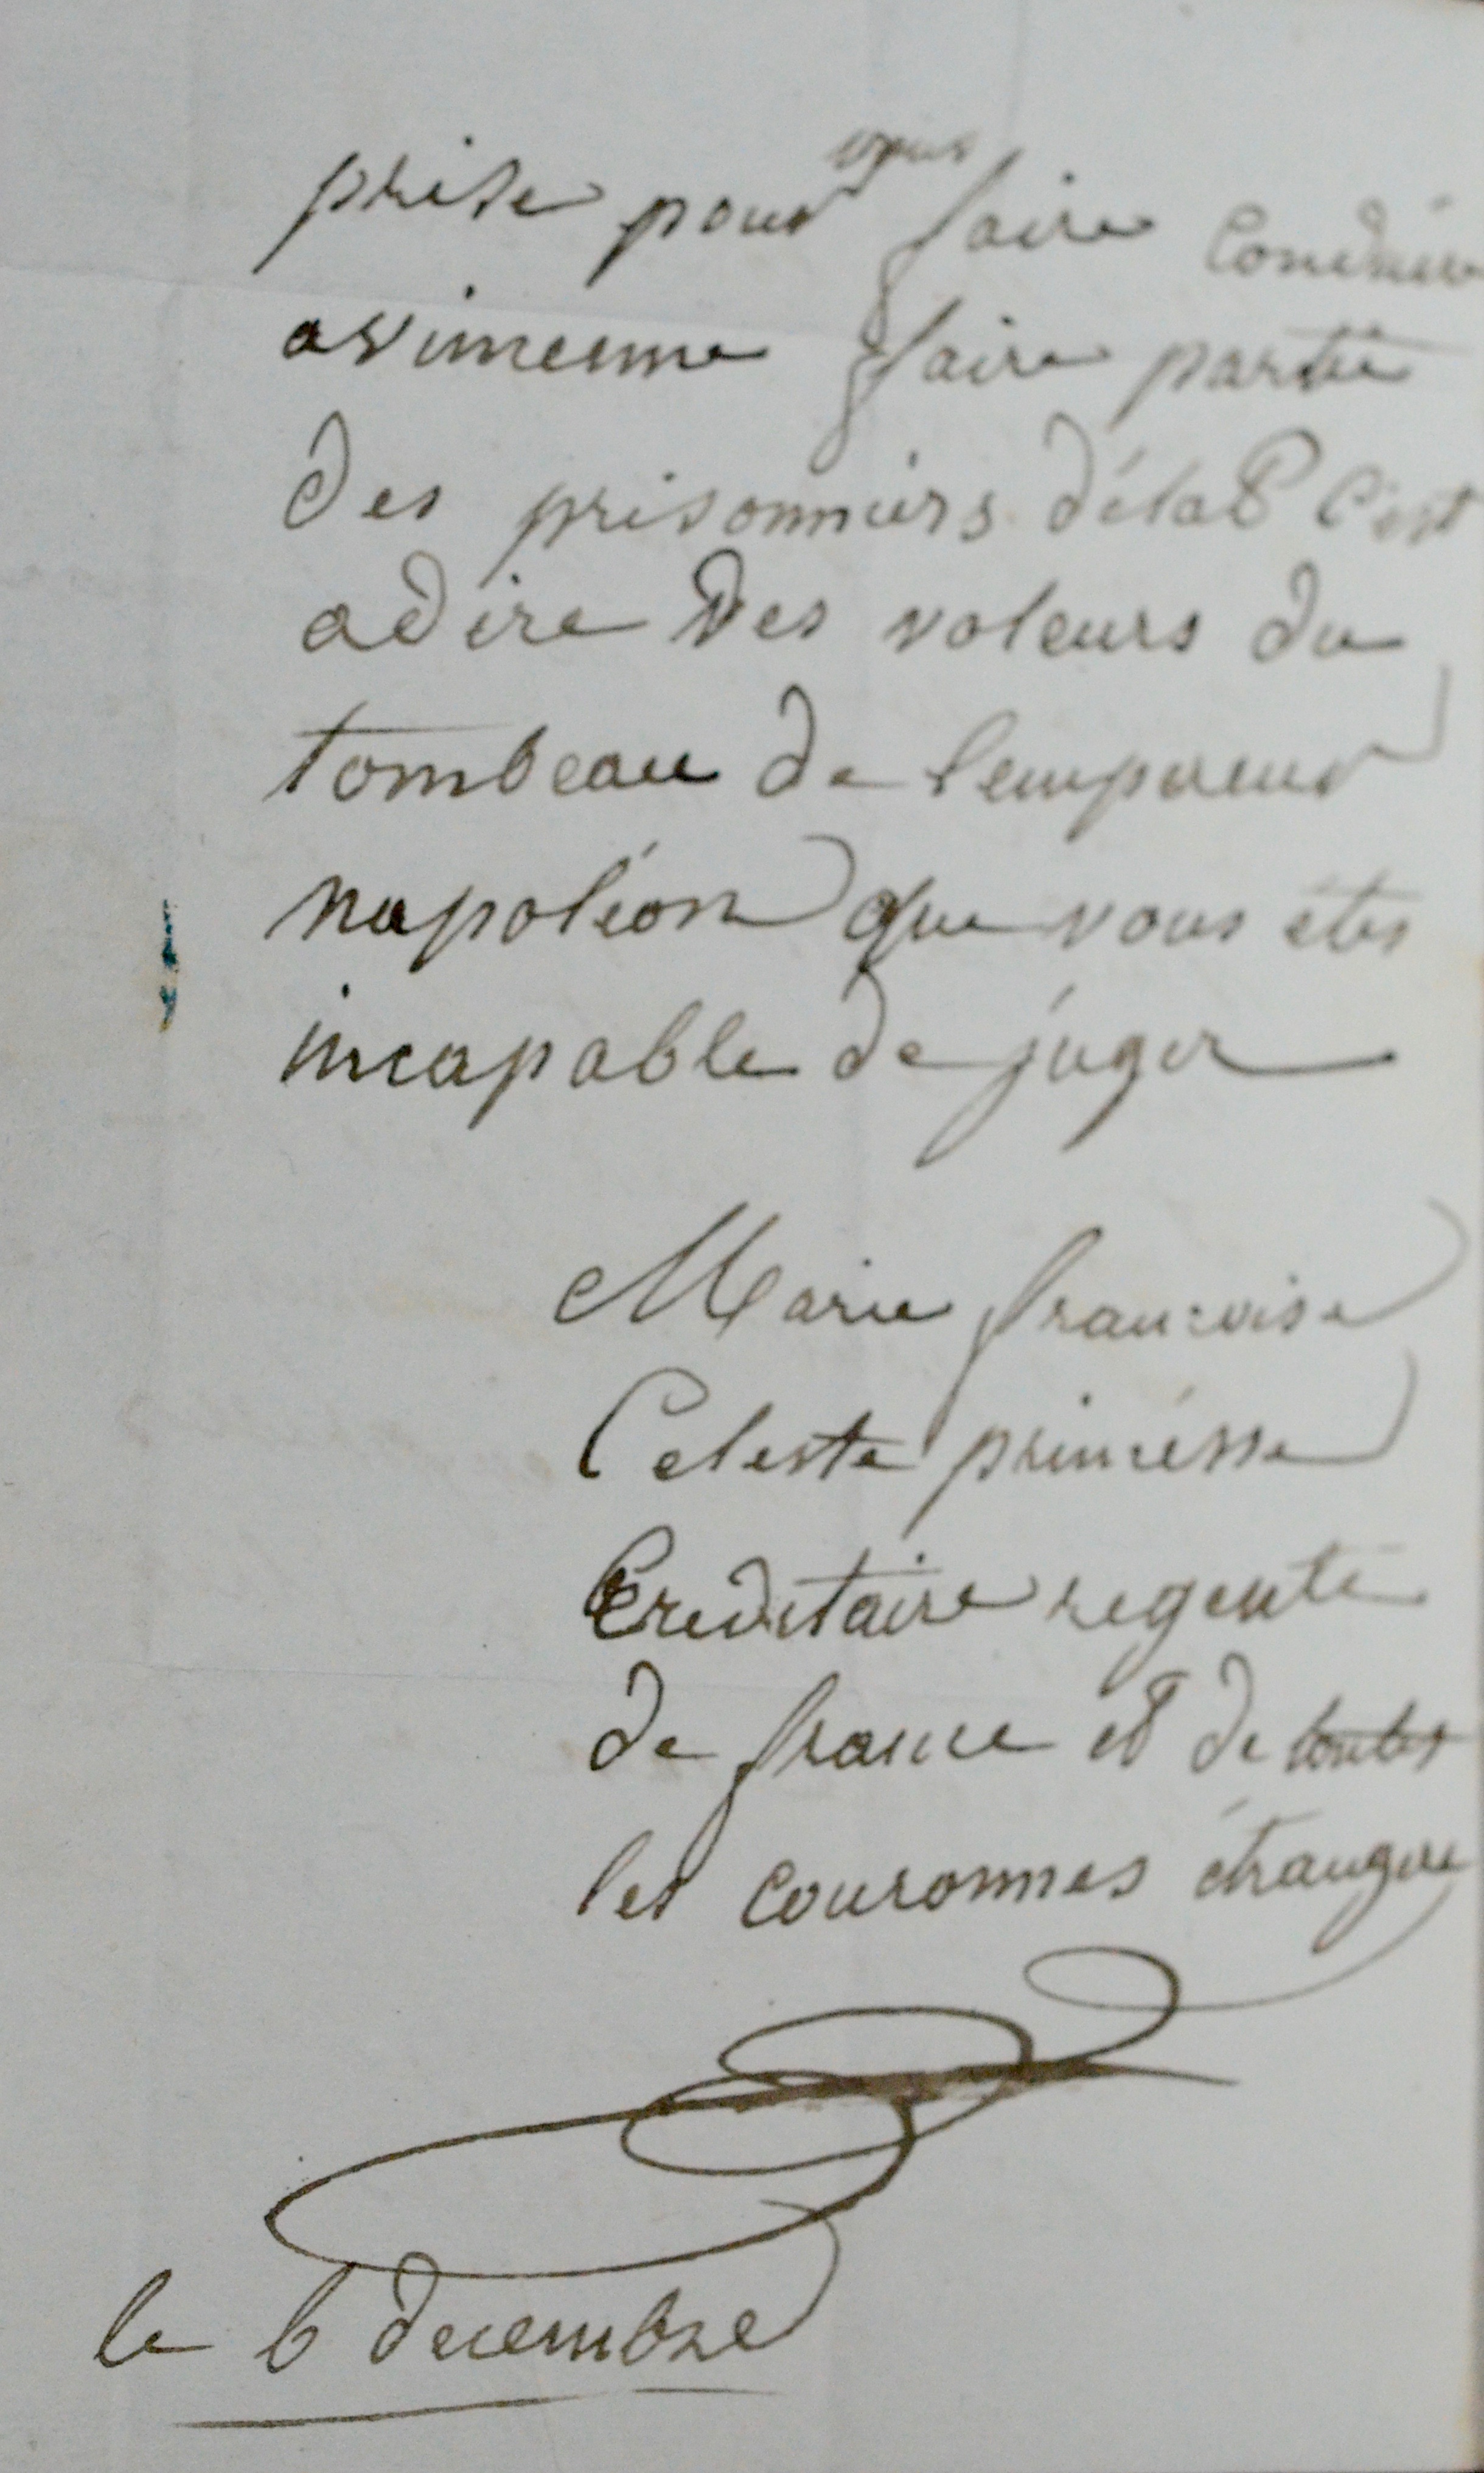 prise pour vous faire conduire
avincenne faire partie
des prisonniers d'état c'est
adire des voleurs du
tombeau de lempereur
napoléon que vous etes
incapable de juger
Marie francoise
Celeste princésse
hereditaire regente
de france et de toutes
les couronnes étrangere
le 6 decembre